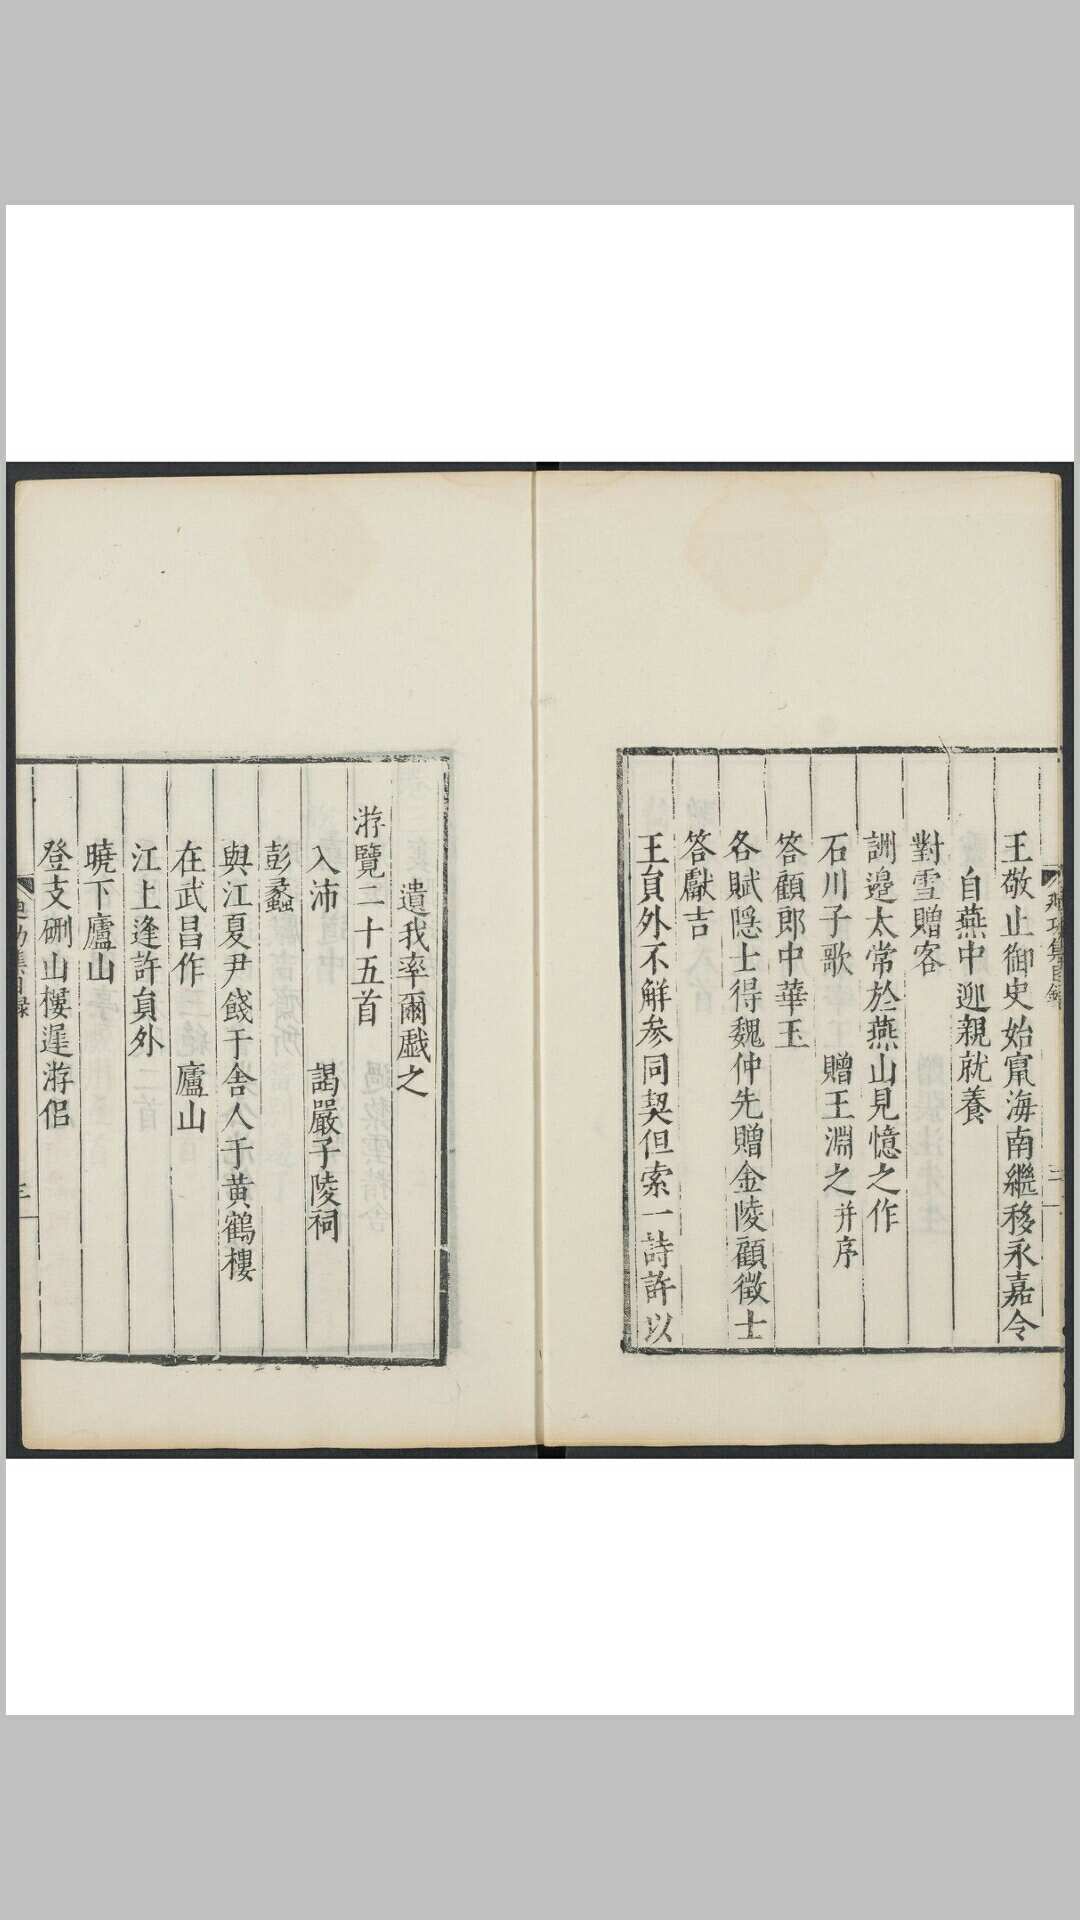 王敬止御史始竄海南繼移永嘉令
自燕中迎親就養
對雪贈客
詶邊太常於燕山見憶之作
石川子歌　贈王淵之并序
答顧郎中華玉
各賦隱士得魏仲先贈金陵顧徵士
答獻吉
王員外不解參同契但索一詩許以
遺我率爾戲之
游覽二十五首
入沛　謁嚴子陵祠
彭蠡
與江夏尹餞于舍人于黃鶴樓
在武昌作　廬山
江上逢許員外
曉下廬山
登支硎山樓遲游侶
迪功集目録
三